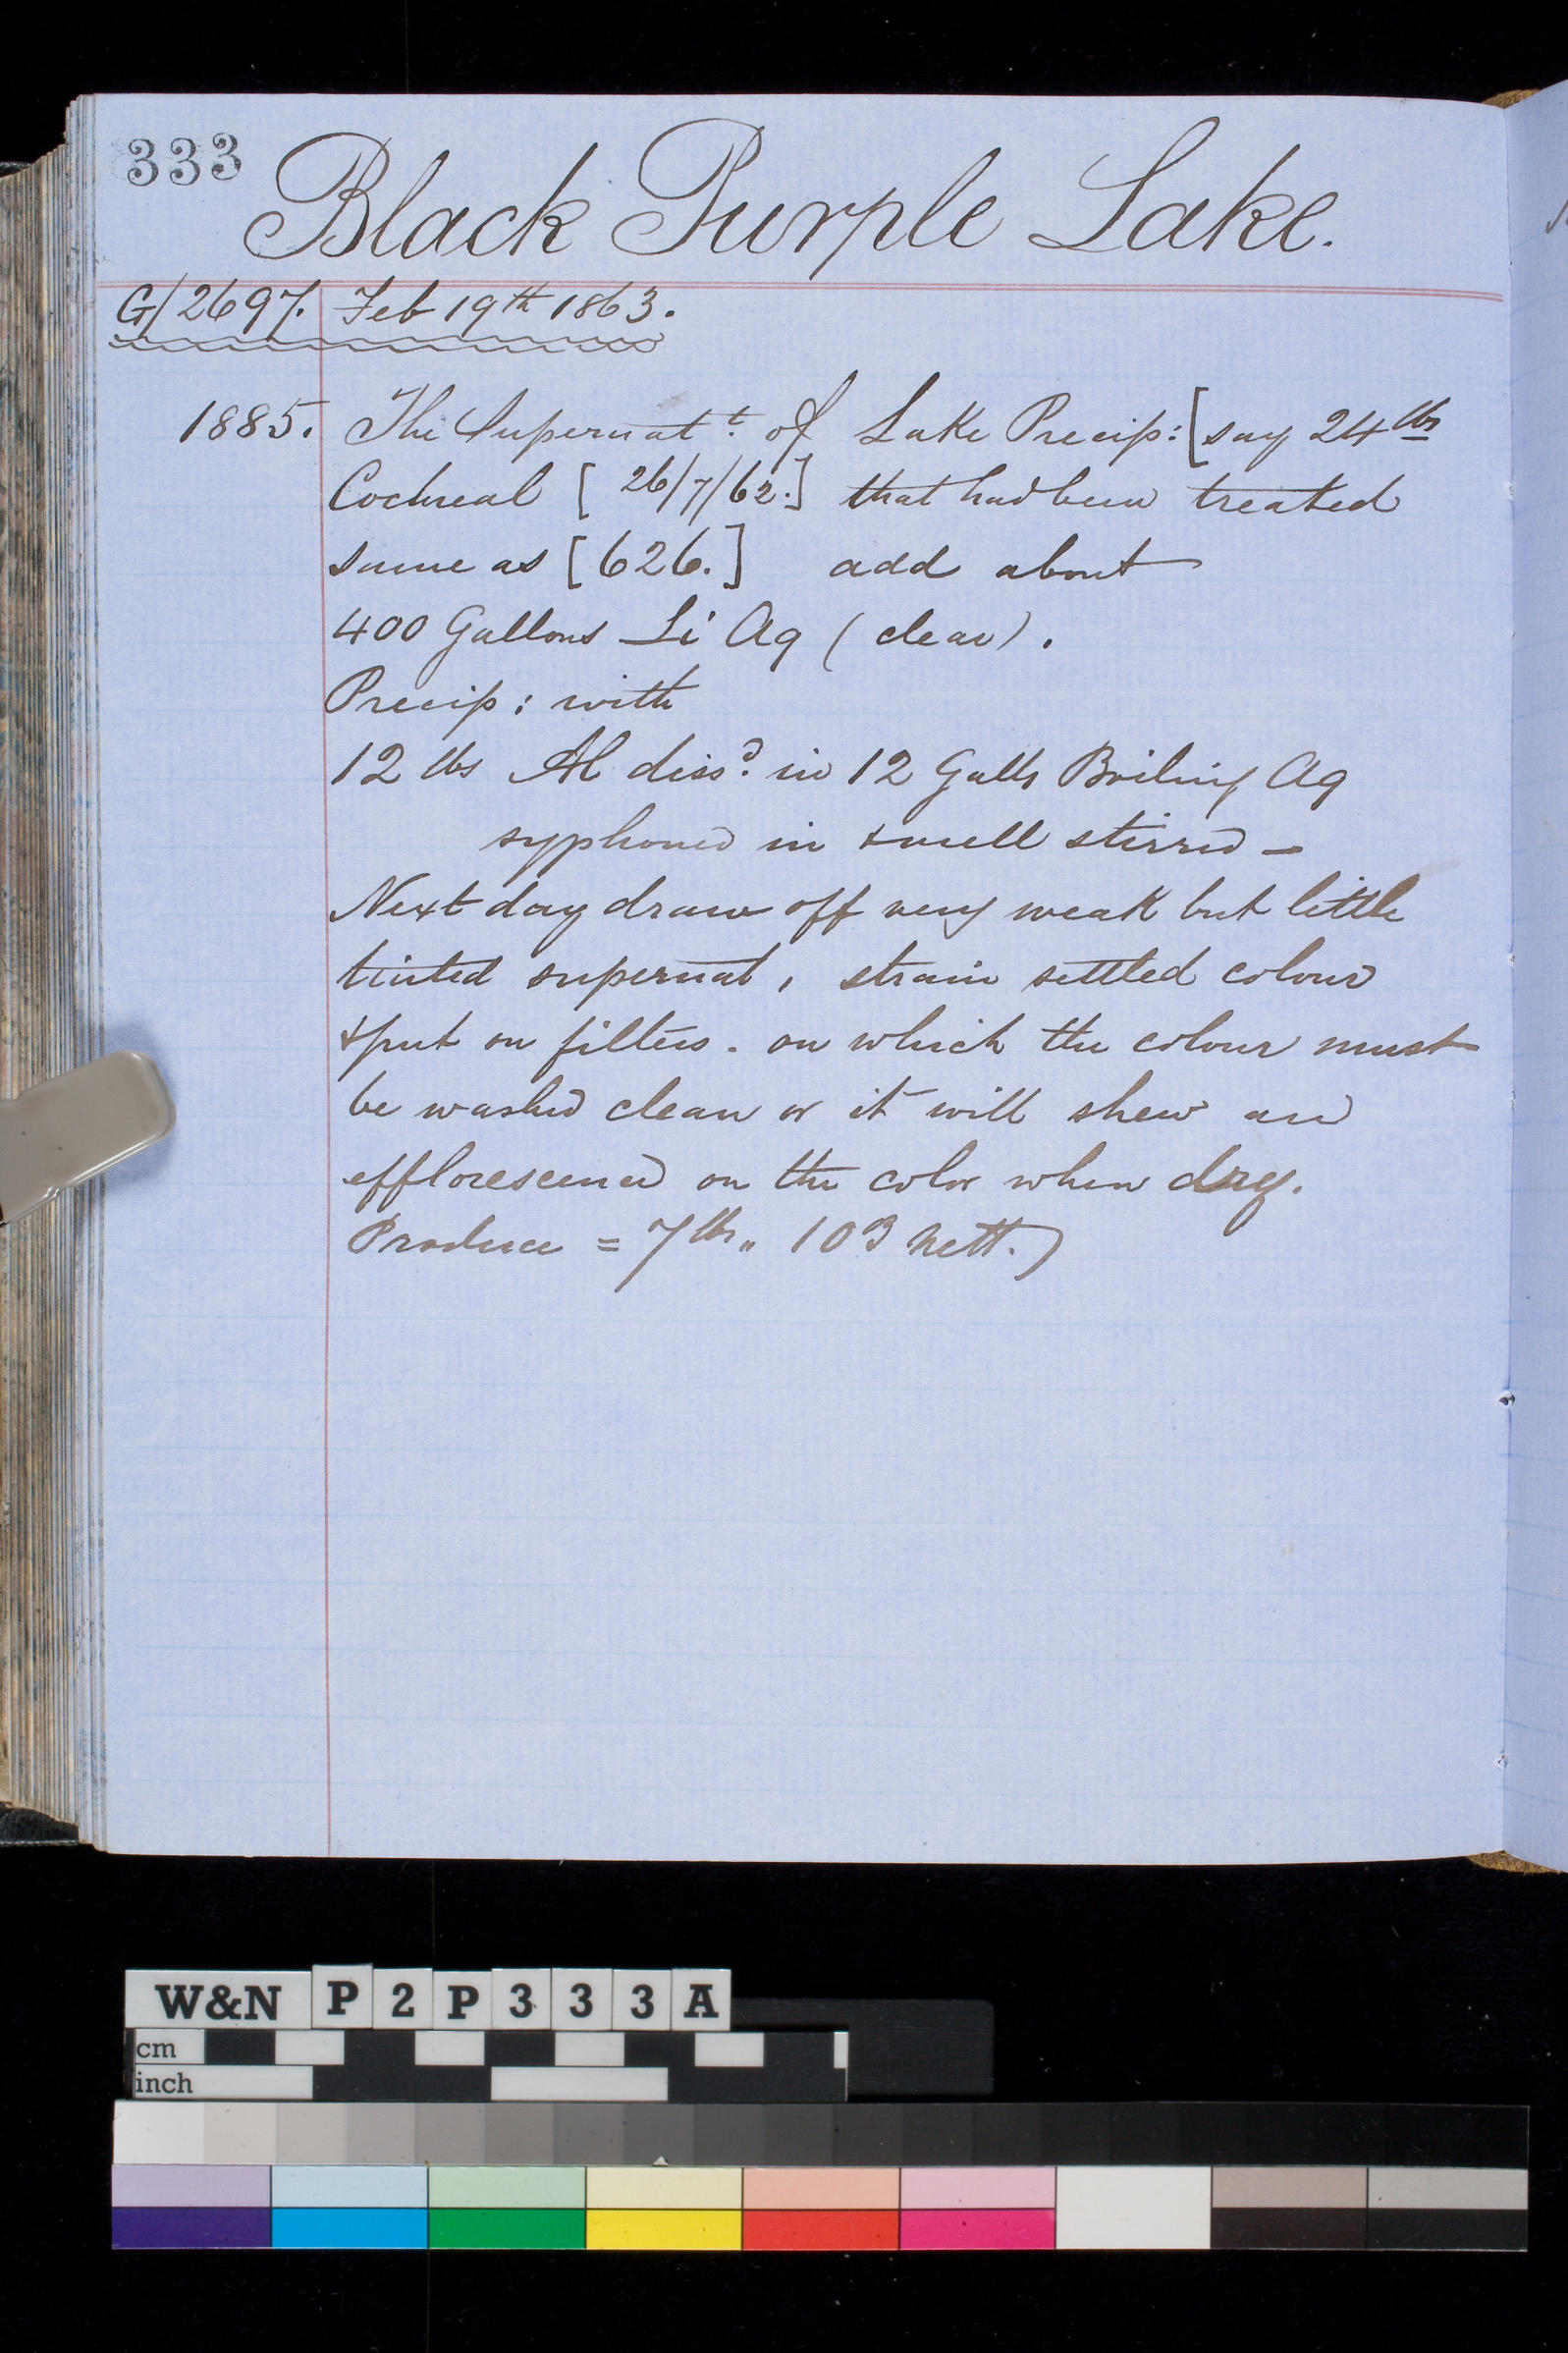 333
Black Purple Lake.
G/2697. Feb 19th 1863.
1885. The Supernatt. of Lake Precip: [say 24 lbs
Cochneal [26/7/62.] that had been treated
same as [626.] add about
400 Gallons Li Aq (clear).
Precip: with
12 lbs Al dissd. in 12 Galls Boiling Aq
syphoned in & well stirred —
Next day draw off very weak but little
tinted supernat, strain settled colour
& put on filters. on which the colour must
be washed clean or it will shew an
efflorescence on the color when dry.
Produce = 7 lbs,, 10 nett.)
W&N P2P333A
cm
inch